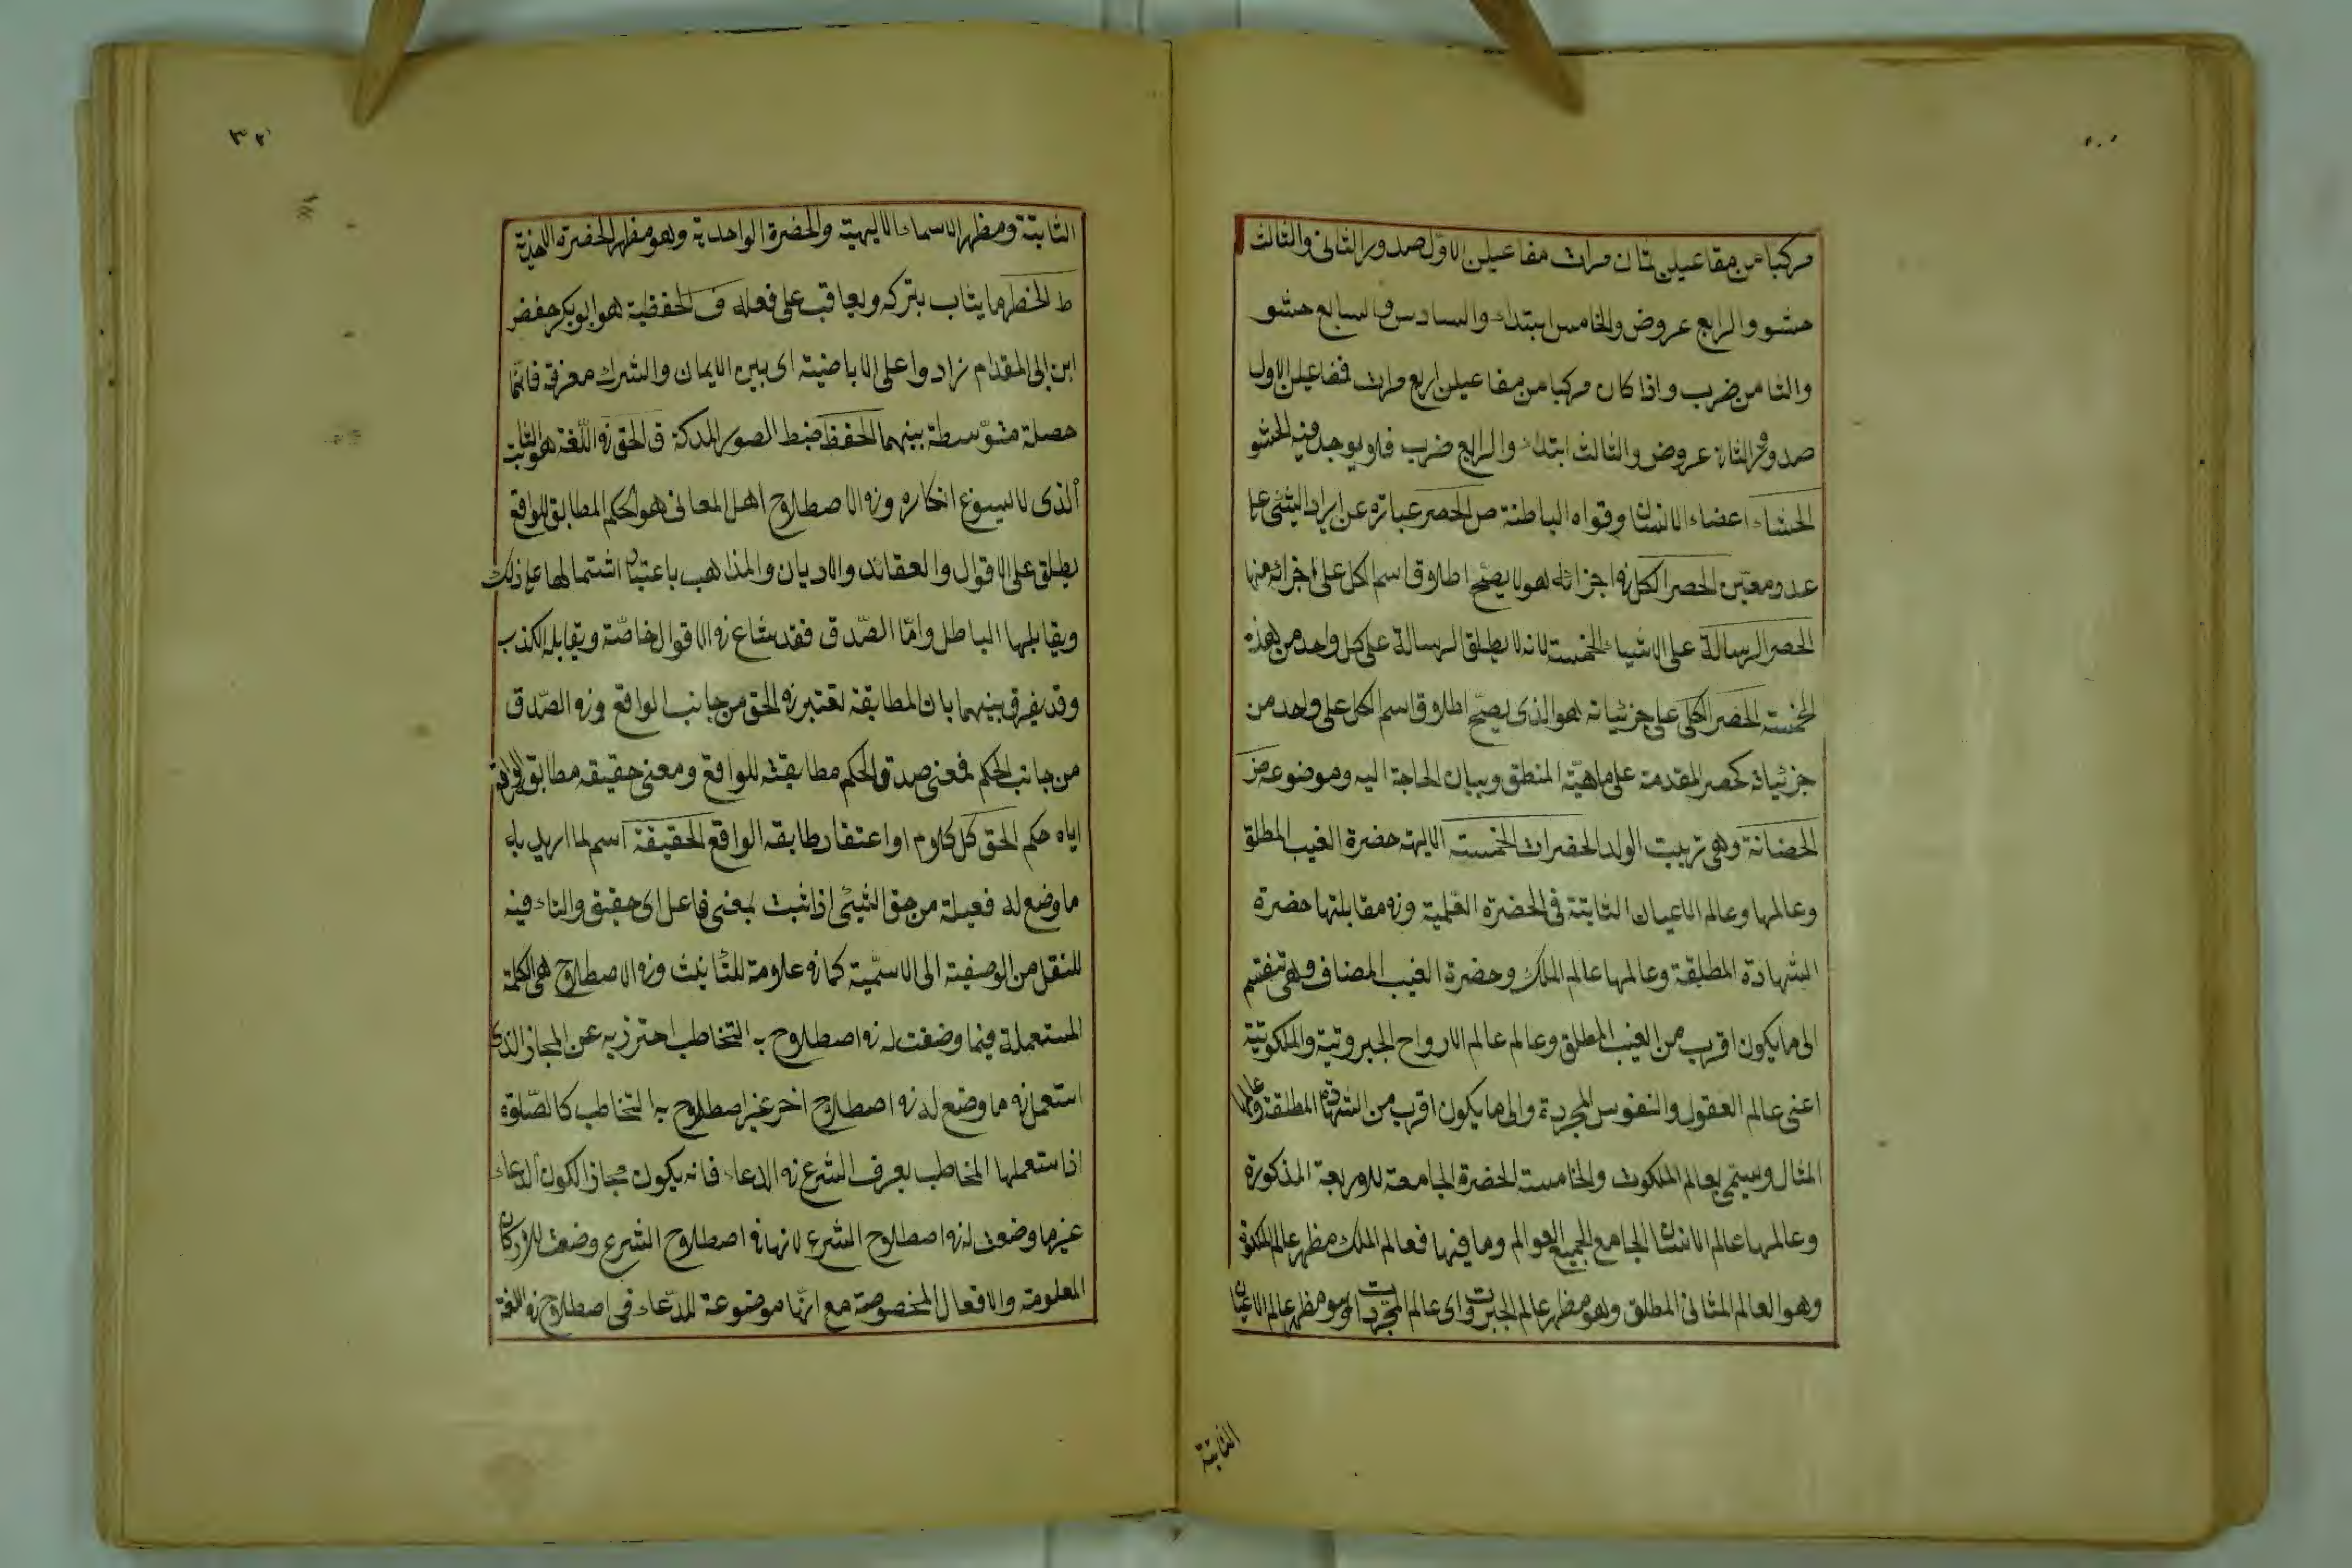 مركبا من مفاعيلن ثمان مرات مفاعيلن الاول صدور الثانى والثالث
حشو والرابع عروض والخامس ابتداء والسادس والسابع حشو
والثامن ضرب واذا كان مركبا من مفاعيلن اربع مرات فمفاعيلن الاول
صدر والثانى عروض والثالث ابتداء والرابع ضرب فلا يوجد فيه الحشو
الحشاء اعضاء الانسان وقواه الباطنة ص الحصر عبارة عن ايراد الشئ على
عدد معين الحصر الكل فى اجزائه هو لا يصح اطلاق اسم الكل على اجزائه منها
الحصر الرسالة على الاشياء الخمسة لانه لا يطلق الرسالة على كل واحد من هذه
الخمسة الحصر الكلى على جزئياته هو الذى يصح اطلاق اسم الكل على واحد من
جزئياته كحصر المقدمة على ماهية المنطق وبيان الحاجة اليه وموضوعه ض
الحضانة وهى تربيت الولد الحضرات الخمسة الالهية حضرة الغيب المطلق
وعالمها وعالم الاعيان الثابتة فى الحضرة العلمية وفى مقابلتها حضرة
الشهادة المطلقة وعالمها عالم الملك وحضرة الغيب المضاف وهى تنقسم
الى ما يكون اقرب من الغيب المطلق وعالم عالم الارواح الجبروتية والملكوتية
اعنى عالم العقول والنفوس المجردة والى ما يكون اقرب من الشهادة المطلقة وعالمها
المثال ويسمى بعالم الملكوت والخامسة الحضرة الجامعة للاربعة المذكورة
وعالمها عالم الانسان الجامع لجميع العوالم وما فيها فعالم الملك مظهر عالم الملكوت
وهو العالم المثالى المطلق وهو مظهر عالم الجبروت اى عالم المجردات وهو مظهر عالم الاعيان
الثابتة
٣٢
الثابتة ومظهر الاسماء الالهية والحضرة الواحدية وهو مظهر الحضرة الاحدية
ط الحظر ما يثاب بتركه ويعاقب على فعله ف الحفظية هو ابو بكر حفض
ابن ابى المقدام زادوا على الاباضية اى بين الايمان والشرك معرفة فانها
حصلة متوسطة بينهما الحفظ ضبط الصور المدركة ق الحق فى اللغة هو الثابت
الذى لا يسوغ انكاره وفى الاصطلاح اهل المعانى هو الحكم المطابق للواقع
يطلق على الاقوال والعقائد والاديان والمذاهب باعتبار اشتمالها على ذلك
ويقابلها الباطل واما الصدق فقد شاع فى الاقوال خاصة ويقابله الكذب
وقد يفرق بينهما بان المطابقة تعتبر فى الحق من جانب الواقع وفى الصدق
من جانب الحكم فمعنى صدق الحكم مطابقته للواقع ومعنى حقيقه مطابق الواقع
اياه حكم الحق كل كلام او اعتقاد طابقه الواقع الحقيقة اسم لما اريد به
ما وضع له فعيلة من حق الشئ اذا ثبت بمعنى فاعل اى حقيق والتاء فيه
للنقل من الوصفية الى الاسمية كما فى علامة للتأنيث وفى الاصطلاح هى الكلمة
المستعملة فيما وضعت له فى اصطلاح به التخاطب احترز به عن المجاز الذى
استعمل فى ما وضع له فى اصطلاح اخر غير اصطلاح به التخاطب كالصلوة
اذا ستعملها المخاطب بعرف الشرع فى الدعاء فانه يكون مجازا لكون الدعاء
غير ما وضعت له فى اصطلاح الشرع لانها فى اصطلاح الشرع وضعت للاركان
المعلومة والافعال المخصوصة مع انها موضوعة للدعاء فى اصطلاح فى اللغة